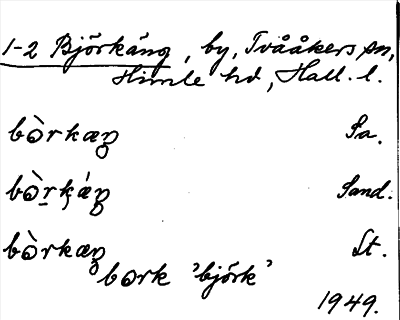 1-2 Björkäng, by, Tvååkers sn,
Himle hd, Hall. l.
bòrkæŋ Sa.
bòrk̨ǽŋ Sand.
bòrkæŋ St.
bork 'björk'
1949.